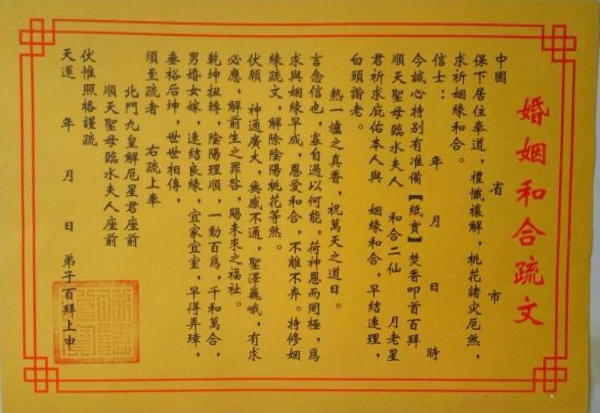 婚姻和合疏文
中國 省 市
保下居住奉道，禮懺禳解，桃花諸災厄煞，
求祈姻緣和合。
信士： 年 月 日 時
今誠心特別有准備【紙寶】焚香叩首百拜
順天聖母臨水夫人 和合二仙 月老星
君祈求庇佑本人與 姻緣和合，早結連理，
白頭諧老。
熱一爐之真香，祝萬天之道日。
言念信也，寡自過以何能，荷神恩而罔極，爲
求與姻緣早成，恩愛和合，不離不弃。特修姻
緣疏文，解除陰陽桃花等煞。
伏願 神通廣大，無感不通，聖澤巍峨，有求
必應，解前生之罪咎 賜未來之福祉。
乾坤扭轉，陰陽理順，一動百爲，千和萬合，
男婚女嫁，速結良緣，宜家宜室，早得弄璋，
垂裕后坤，世世相傳，
須至疏者 右疏上奉
北門九皇解厄星君座前
順天聖母臨水夫人座前
伏惟照格謹疏
天運 年 月 日 弟子百拜上申